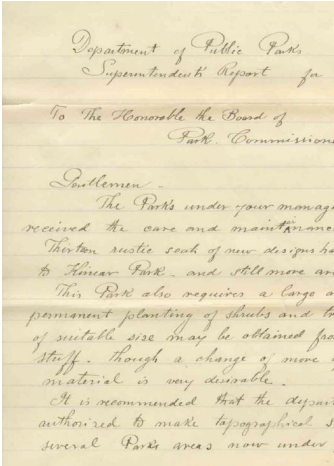 Department of Public Parks
Superintendent's Report for
To The Honorable the Board of
Park Commissions
Gentlemen -
The Parks under your manage
received the care and maintainance
Thirteen rustic seats of new designs ha
to Kinear Park - and still more are
This Park also requires a large a
permanent planting of shrubs and tr
of suitable size may be obtained fro
stuff. though a change of more
material is very desirable.
It is recommended that the depar
authorized to make topographical s
several Parks areas now under